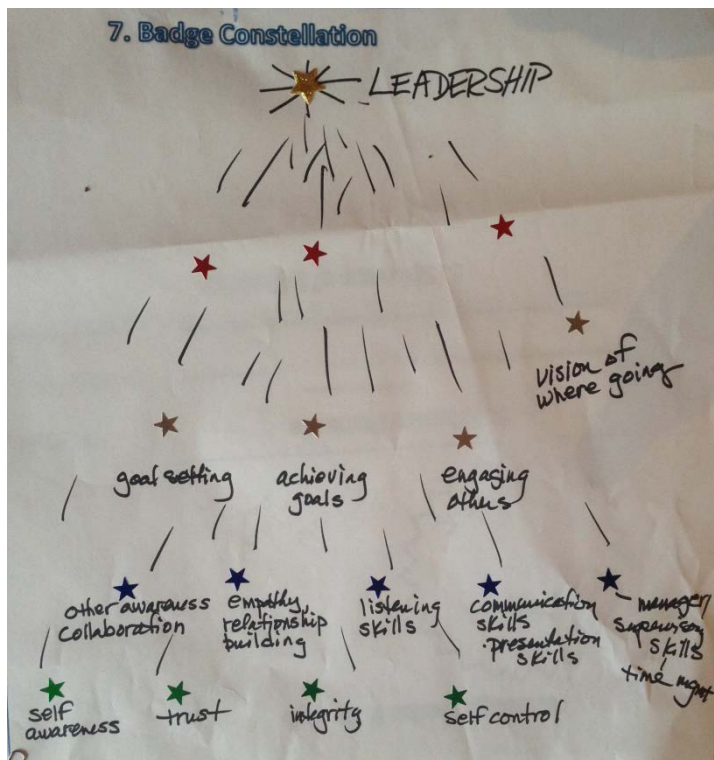 7. Badge Constellation
LEADERSHIP
vision of
where going
goal setting
achieving
goals
engaging
others
other awareness
collaboration
empathy,
relationship
building
listening
skills
communication
skills
presentation
skills
manager/
supervisory
skills
time mgmt
self
awareness
trust
integrity
self control